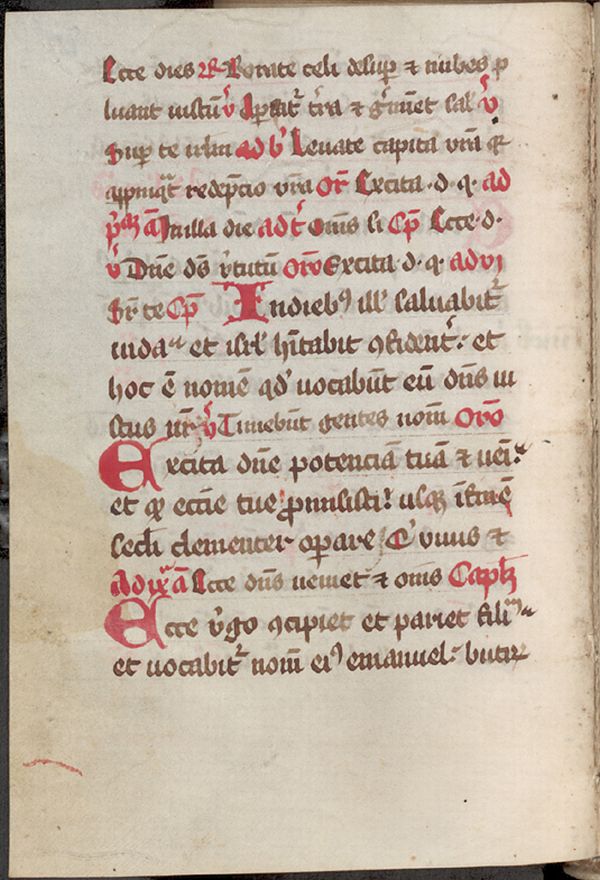 Ecce dies R Rorate celi desup̄ ⁊ nubes p
luant iustū v̓ Aperiat᷑ t̄ra ⁊ g̓mēt sal᷑ v̓
Sup te irlm ad b̓ Leuate capita vrā q̄
appīq̄t redēpcio vrā Or̄ Excita · d · q · ad
p̓ā ā In illa die ad t̓ Om̄s si Cp̄ Ecce · d ·
v̓ Dn̄e ds̄ v̓tutū Orō Excita · d · q · ad vi
Sr̄ te Cp̄ In dieb⁹ ill᷑ saluabit᷑
iuda et isrl᷑ hītabit ꝯfident᷑ · et
hoc ē nomē qd᷑ uocabūt eū dn̄s iu
stus nr̄ v̓ Timebūt gentes nom̄ Orō
Excita dn̄e potenciā tuā ⁊ ueī
et q̄ ecc̄ie tue ꝓmisisti usq̄ ī finē
secl̄i clementer oꝑare Q᷑ viuis ⁊
Ad ix ā Ecce dn̄s ueniet ⁊ om̄s Capl̄
Ecce v̓go ꝯcipiet et pariet filiū
et uocabit᷑ nom̄ ei⁹ emanuel · butir̄